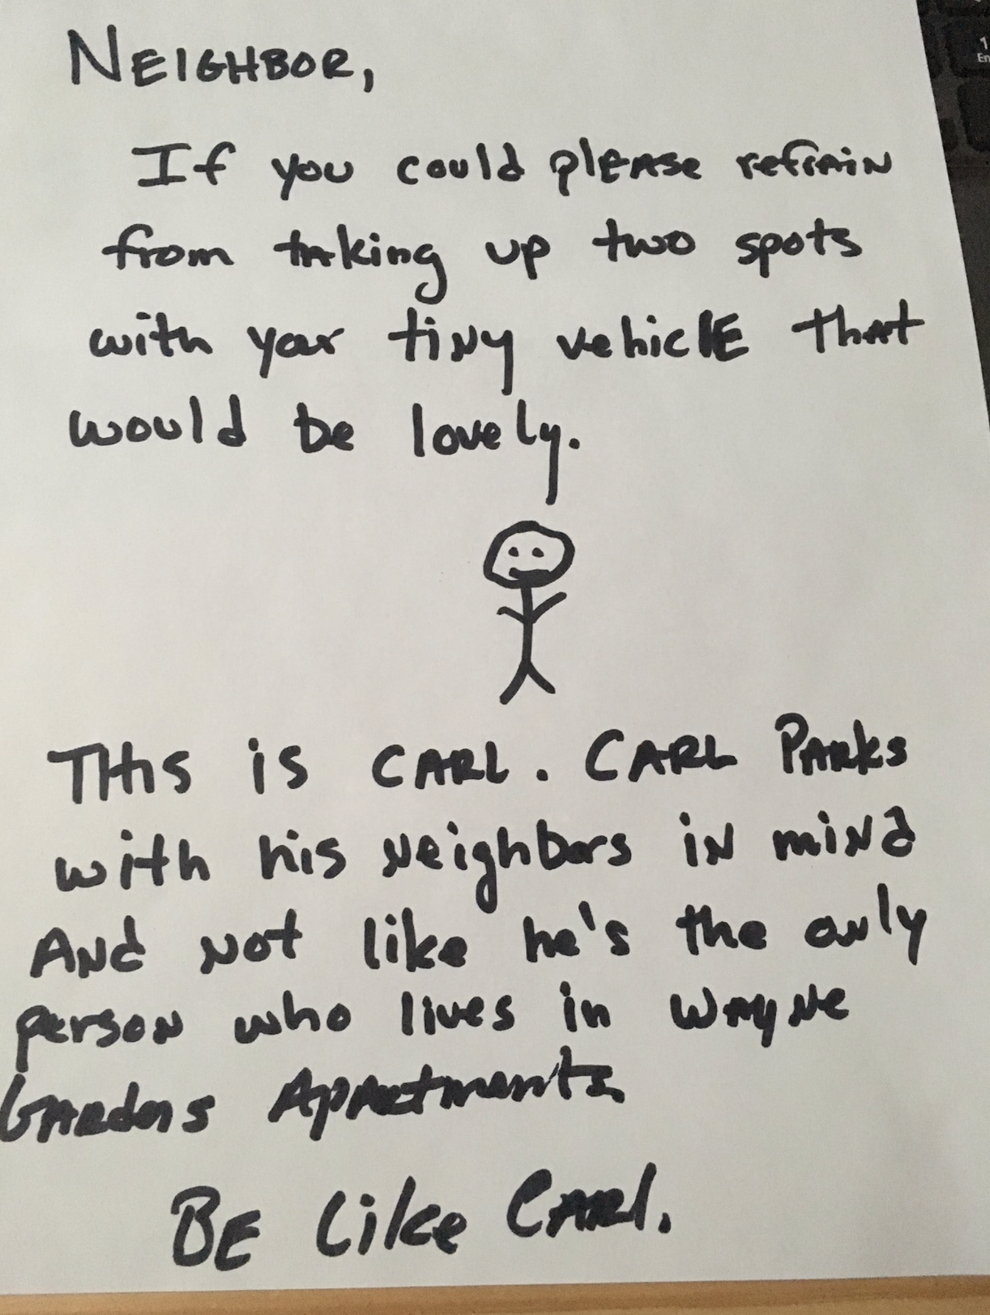 NEIGHBOR,
If you could please refrain
from taking up two spots
with your tiny vehicle that
would be lovely.
This is CARL. CARL Parks
with his neighbors in mind
And not like he's the only
person who lives in Wayne
Gardens Apartments
BE Like Carl.
1
En